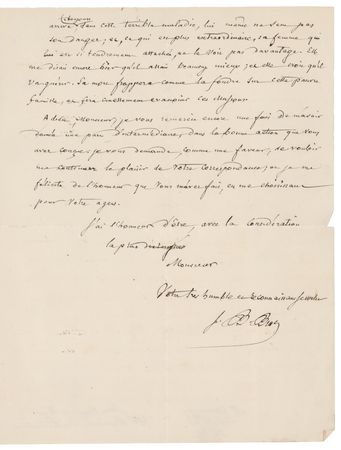 toujours
arrive dans cette terrible maladie, lui même ne sent pas
son danger; et, ce qui est plus extraordinaire, sa femme qui
lui est si tendrement attachée ne le voit pas davantage. Elle
me disait encore hier qu'il allait beaucoup mieux, et elle croit qu'il
vaquera. Sa mort frappera comme la foudre sur cette pauvre
famille, en fera cruellement évanouir ces
Adieu, Monsieur, je vous remercie encore une fois de m'avoir
donné une part d'intermédiaire, dans la bonne action que vous
avez conçue. je vous demande, comme une faveur, de vouloir
me continuer le plaisir de votre correspondance, et je me
félicite de l'honneur que vous m'avez fait, en me choisissant
pour votre agent.
J'ai l'honneur d'être, avec la considération
la plus distinguée
Monsieur
Votre très humble et reconnaissant serviteur